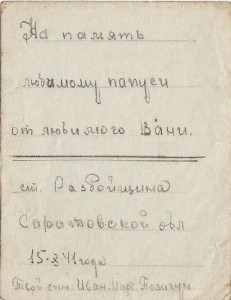 На память
любимому папуси
от любимого Вани.
ст. Разбойщина
Саратовской обл
15-X-41 года
Твой сын. Иван. Март.